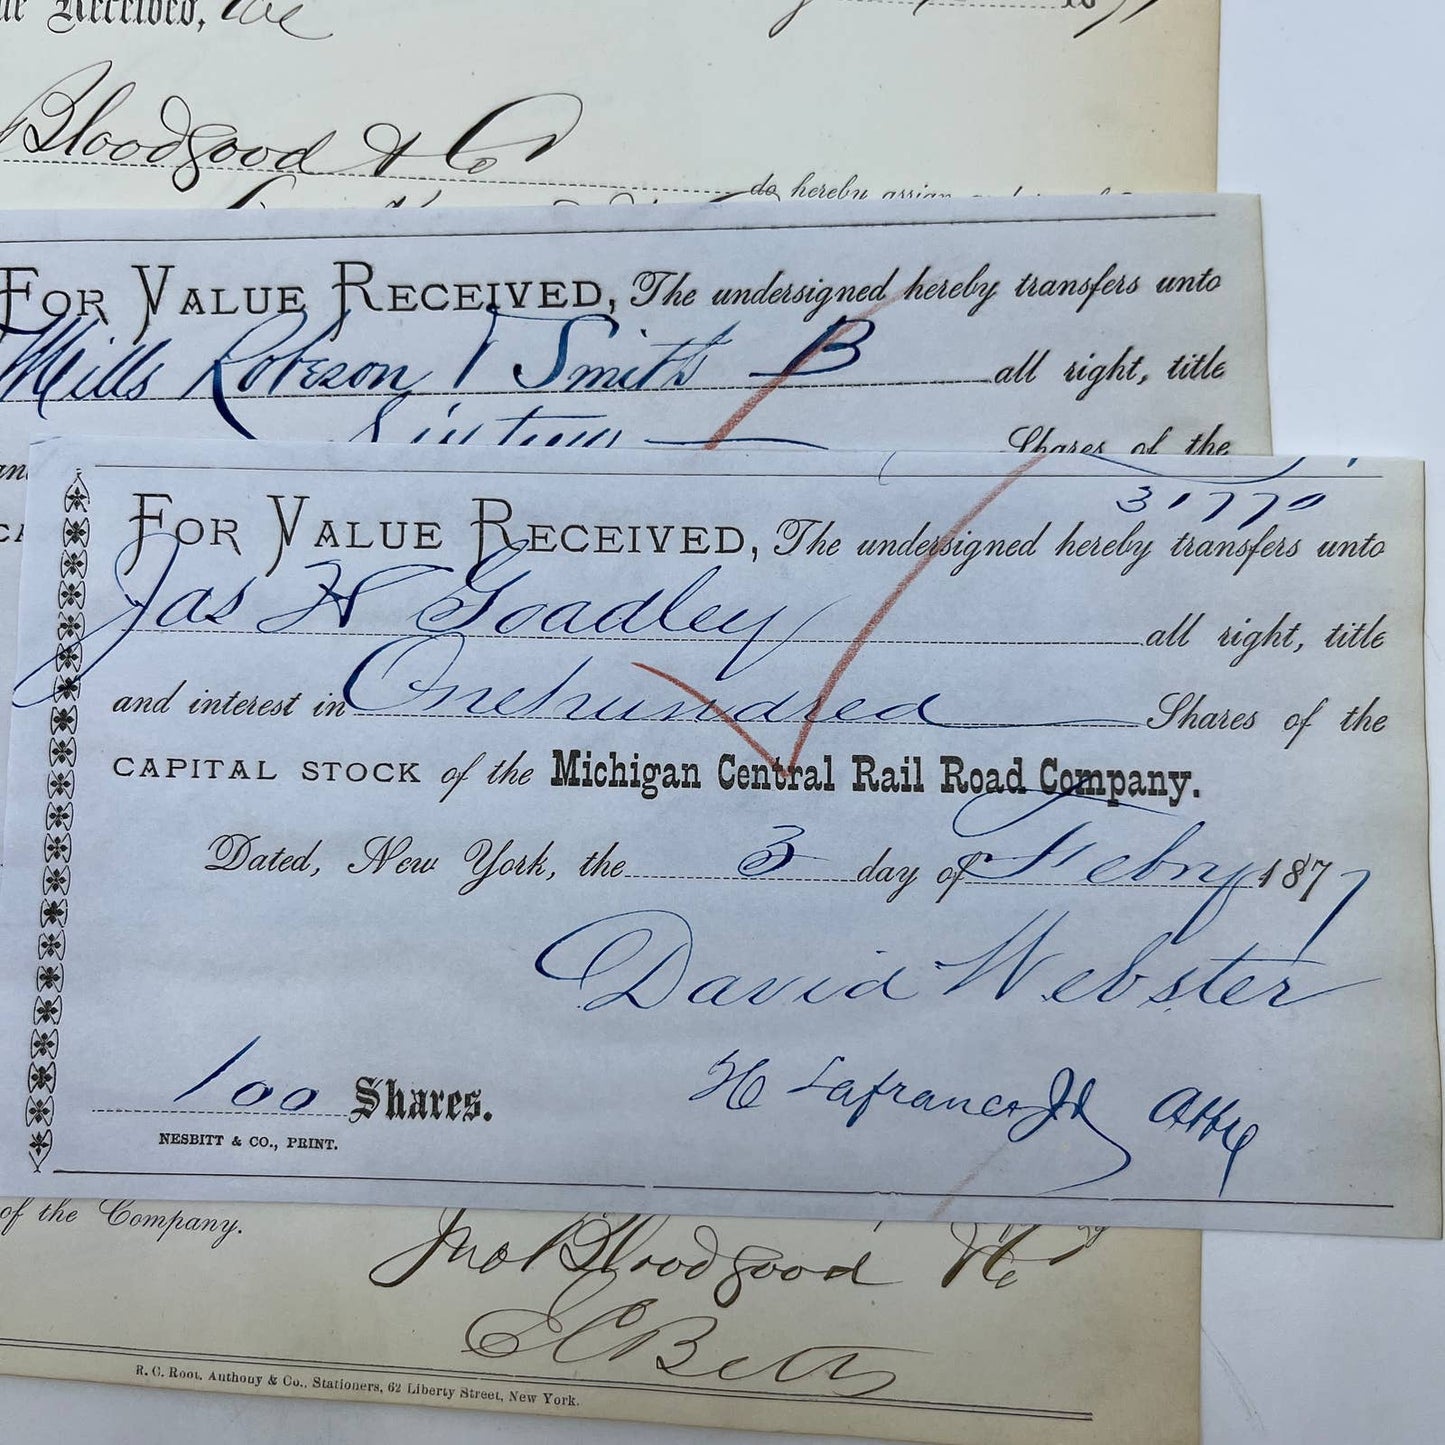 Received, We
Bloodgood & Co
do hereby assign
FOR VALUE RECEIVED, The undersigned hereby transfers unto
Mills Robeson & Smith B all right, title
Shares of the
31770
FOR VALUE RECEIVED, The undersigned hereby transfers unto
Jas H Goadley all right, title
and interest in One hundred Shares of the
CAPITAL STOCK of the Michigan Central Rail Road Company.
Dated, New York, the 3 day of Febry 1877
David Webster
H Lafrance Atty
100 Shares.
NESBITT & CO., PRINT.
of the Company.
Jno Bloodgood & Co
E C Betts
R. C. Root, Anthony & Co., Stationers, 62 Liberty Street, New York.